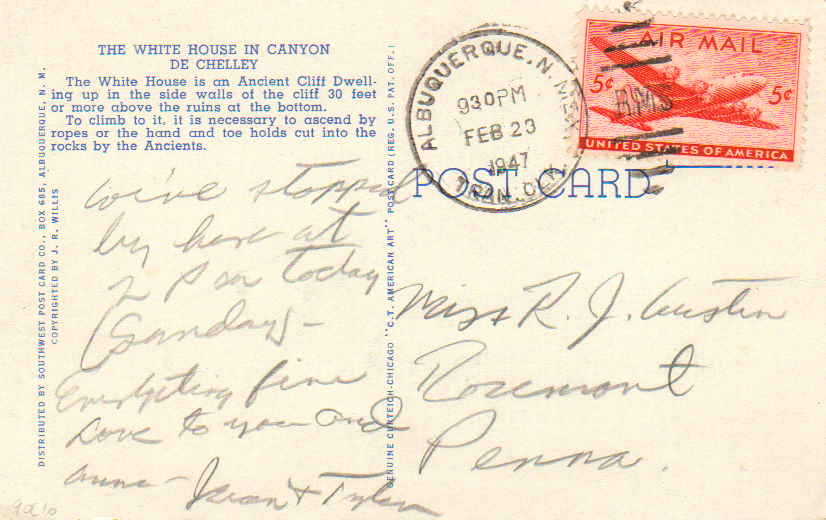 THE WHITE HOUSE IN CANYON
DE CHELLEY
The White House is an Ancient Cliff Dwell-
ing up in the side walls of the cliff 30 feet
or more above the ruins at the bottom.
To climb to it, it is necessary to ascend by
ropes or the hand and toe holds cut into the
rocks by the Ancients.
DISTRIBUTED BY SOUTHWEST POST CARD CO., BOX 685, ALBUQUERQUE, N. M.
COPYRIGHTED BY J. R. WILLIS
We've stopped
by here at
2 P m today
(Sunday) -
Everything fine
Love to you and
Anne - Jean + Tyler
GENUINE CURTEICH-CHICAGO "C.T. AMERICAN ART" POST CARD (REG. U.S. PAT. OFF.)
ALBUQUERQUE, N. MEX.
930PM
FEB 23
1947
TRAN. CLK.
AIR MAIL
5¢
RMS
5¢
UNITED STATES OF AMERICA
POST CARD
Miss R. J. Austin
Rosemont
Penna.